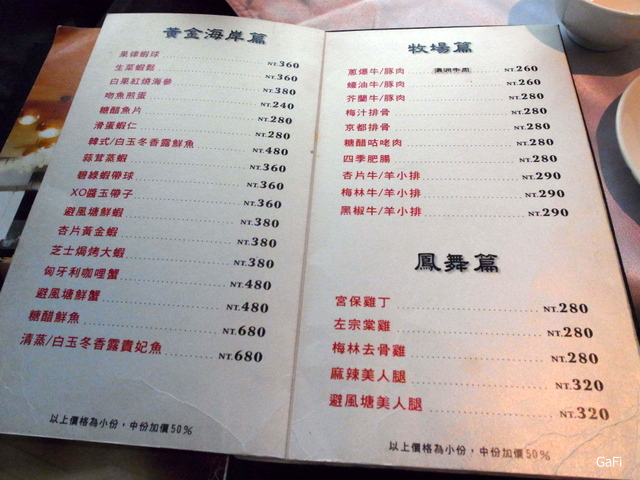 黃金海岸篇
果律蝦球 NT.360
生菜蝦鬆 NT.360
白果紅燒海參 NT.380
吻魚煎蛋 NT.240
糖醋魚片 NT.280
滑蛋蝦仁 NT.280
韓式/白玉冬香露鮮魚 NT.480
蒜茸蒸蝦 NT.360
碧綠蝦帶球 NT.360
XO醬玉帶子 NT.360
避風塘鮮蝦 NT.380
杏片黃金蝦 NT.380
芝士焗烤大蝦 NT.380
匈牙利咖哩蟹 NT.480
避風塘鮮蟹 NT.480
糖醋鮮魚 NT.680
清蒸/白玉冬香露貴妃魚 NT.680
以上價格為小份，中份加價50%
牧場篇
蔥爆牛/豚肉 澳洲牛肉 NT.260
蠔油牛/豚肉 NT.260
芥蘭牛/豚肉 NT.280
梅汁排骨 NT.280
京都排骨 NT.280
糖醋咕咾肉 NT.280
四季肥腸 NT.280
杏片牛/羊小排 NT.290
梅林牛/羊小排 NT.290
黑椒牛/羊小排 NT.290
鳳舞篇
宮保雞丁 NT.280
左宗棠雞 NT.280
梅林去骨雞 NT.280
麻辣美人腿 NT.320
避風塘美人腿 NT.320
以上價格為小份，中份加價50%
GaFi